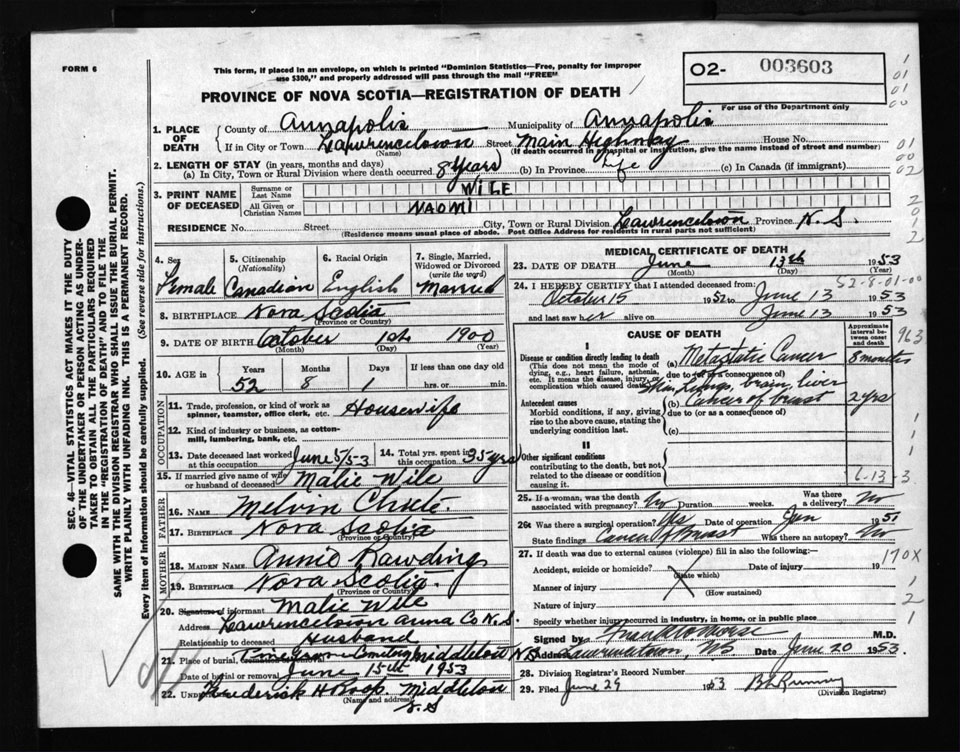 FORM 6
This form, if placed in an envelope, on which is printed "Dominion Statistics—Free, penalty for improper
use $300," and properly addressed will pass through the mail "FREE"
02- 003603
For use of the Department only
PROVINCE OF NOVA SCOTIA—REGISTRATION OF DEATH
1. PLACE OF DEATH
County of Annapolis Municipality of Annapolis
If in City or Town Lawrencetown Street Main Highway House No.
(Name) (If death occurred in a hospital or institution, give the name instead of street and number)
2. LENGTH OF STAY (in years, months and days)
(a) In City, Town or Rural Division where death occurred 8 years (b) In Province Life (c) In Canada (if immigrant)
3. PRINT NAME OF DECEASED
Surname or Last Name WILE
All Given or Christian Names NAOMI
RESIDENCE No. Street City, Town or Rural Division Lawrencetown Province N.S.
(Residence means usual place of abode. Post Office Address for residents in rural parts not sufficient)
4. Sex Female
5. Citizenship (Nationality) Canadian
6. Racial Origin English
7. Single, Married, Widowed or Divorced (write the word) Married
8. BIRTHPLACE Nova Scotia
(Province or Country)
9. DATE OF BIRTH October 1900
(Month) (Day) (Year)
10. AGE in Years 52 Months 8 Days 1 If less than one day hrs. or min.
OCCUPATION
11. Trade, profession, or kind of work as spinner, teamster, office clerk, etc. Housewife
12. Kind of industry or business, as cotton-mill, lumbering, bank, etc.
13. Date deceased last worked at this occupation June 5/53
14. Total yrs. spent in this occupation 35 yrs
15. If married give name of wife or husband of deceased Malic Wile
FATHER
16. NAME Melvin Chute
17. BIRTHPLACE Nova Scotia
(Province or Country)
MOTHER
18. MAIDEN NAME Annie Rawding
19. BIRTHPLACE Nova Scotia.
(Province or Country)
20. Signature of informant Malic Wile
Address Lawrencetown Anna Co N.S.
Relationship to deceased Husband
21. Place of burial, cremation or removal Pine Grove Cemetery Middleton NS
Date of burial or removal June 15th 1953
22. Undertaker Frederick H Roop Middleton
(Name and address) N.S
MEDICAL CERTIFICATE OF DEATH
23. DATE OF DEATH June 13th 1953
(Month) (Day) (Year)
52-8-01-00
24. I HEREBY CERTIFY that I attended deceased from:
October 15 1952 to June 13 1953
and last saw her alive on June 13 1953
CAUSE OF DEATH
Approximate interval between onset and death
963
I
Disease or condition directly leading to death
(This does not mean the mode of dying, e.g., heart failure, asthenia, etc. It means the disease, injury, or complication which caused death)
(a) Metastatic Cancer 8 months
due to (or as a consequence of)
Skin, Lungs, brain, liver
Antecedent causes
Morbid conditions, if any, giving rise to the above cause, stating the underlying condition last.
(b) Cancer of breast 2 yrs
due to (or as a consequence of)
(c)
II
Other significant conditions
contributing to the death, but not related to the disease or condition causing it
6-13-3
25. If a woman, was the death associated with pregnancy? No Duration weeks. Was there a delivery? No
26. Was there a surgical operation? Yes Date of operation Jan 1951
State findings Cancer of breast Was there an autopsy? No
27. If death was due to external causes (violence) fill in also the following:—
170X
Accident, suicide or homicide? (State which) Date of injury 19
Manner of injury
(How sustained)
Nature of injury
Specify whether injury occurred in industry, in home, or in public place
Signed by M.D.
Address Lawrencetown, NS Date June 20 1953.
28. Division Registrar's Record Number
29. Filed June 29 1953
(Division Registrar)
SEC. 46—VITAL STATISTICS ACT MAKES IT THE DUTY
OF THE UNDERTAKER OR PERSON ACTING AS UNDER-
TAKER TO OBTAIN ALL THE PARTICULARS REQUIRED
IN THE "REGISTRATION OF DEATH" AND TO FILE THE
SAME WITH THE DIVISION REGISTRAR WHO SHALL ISSUE THE BURIAL PERMIT.
WRITE PLAINLY WITH UNFADING INK. THIS IS A PERMANENT RECORD.
Every item of information should be carefully supplied. (See reverse side for instructions.)